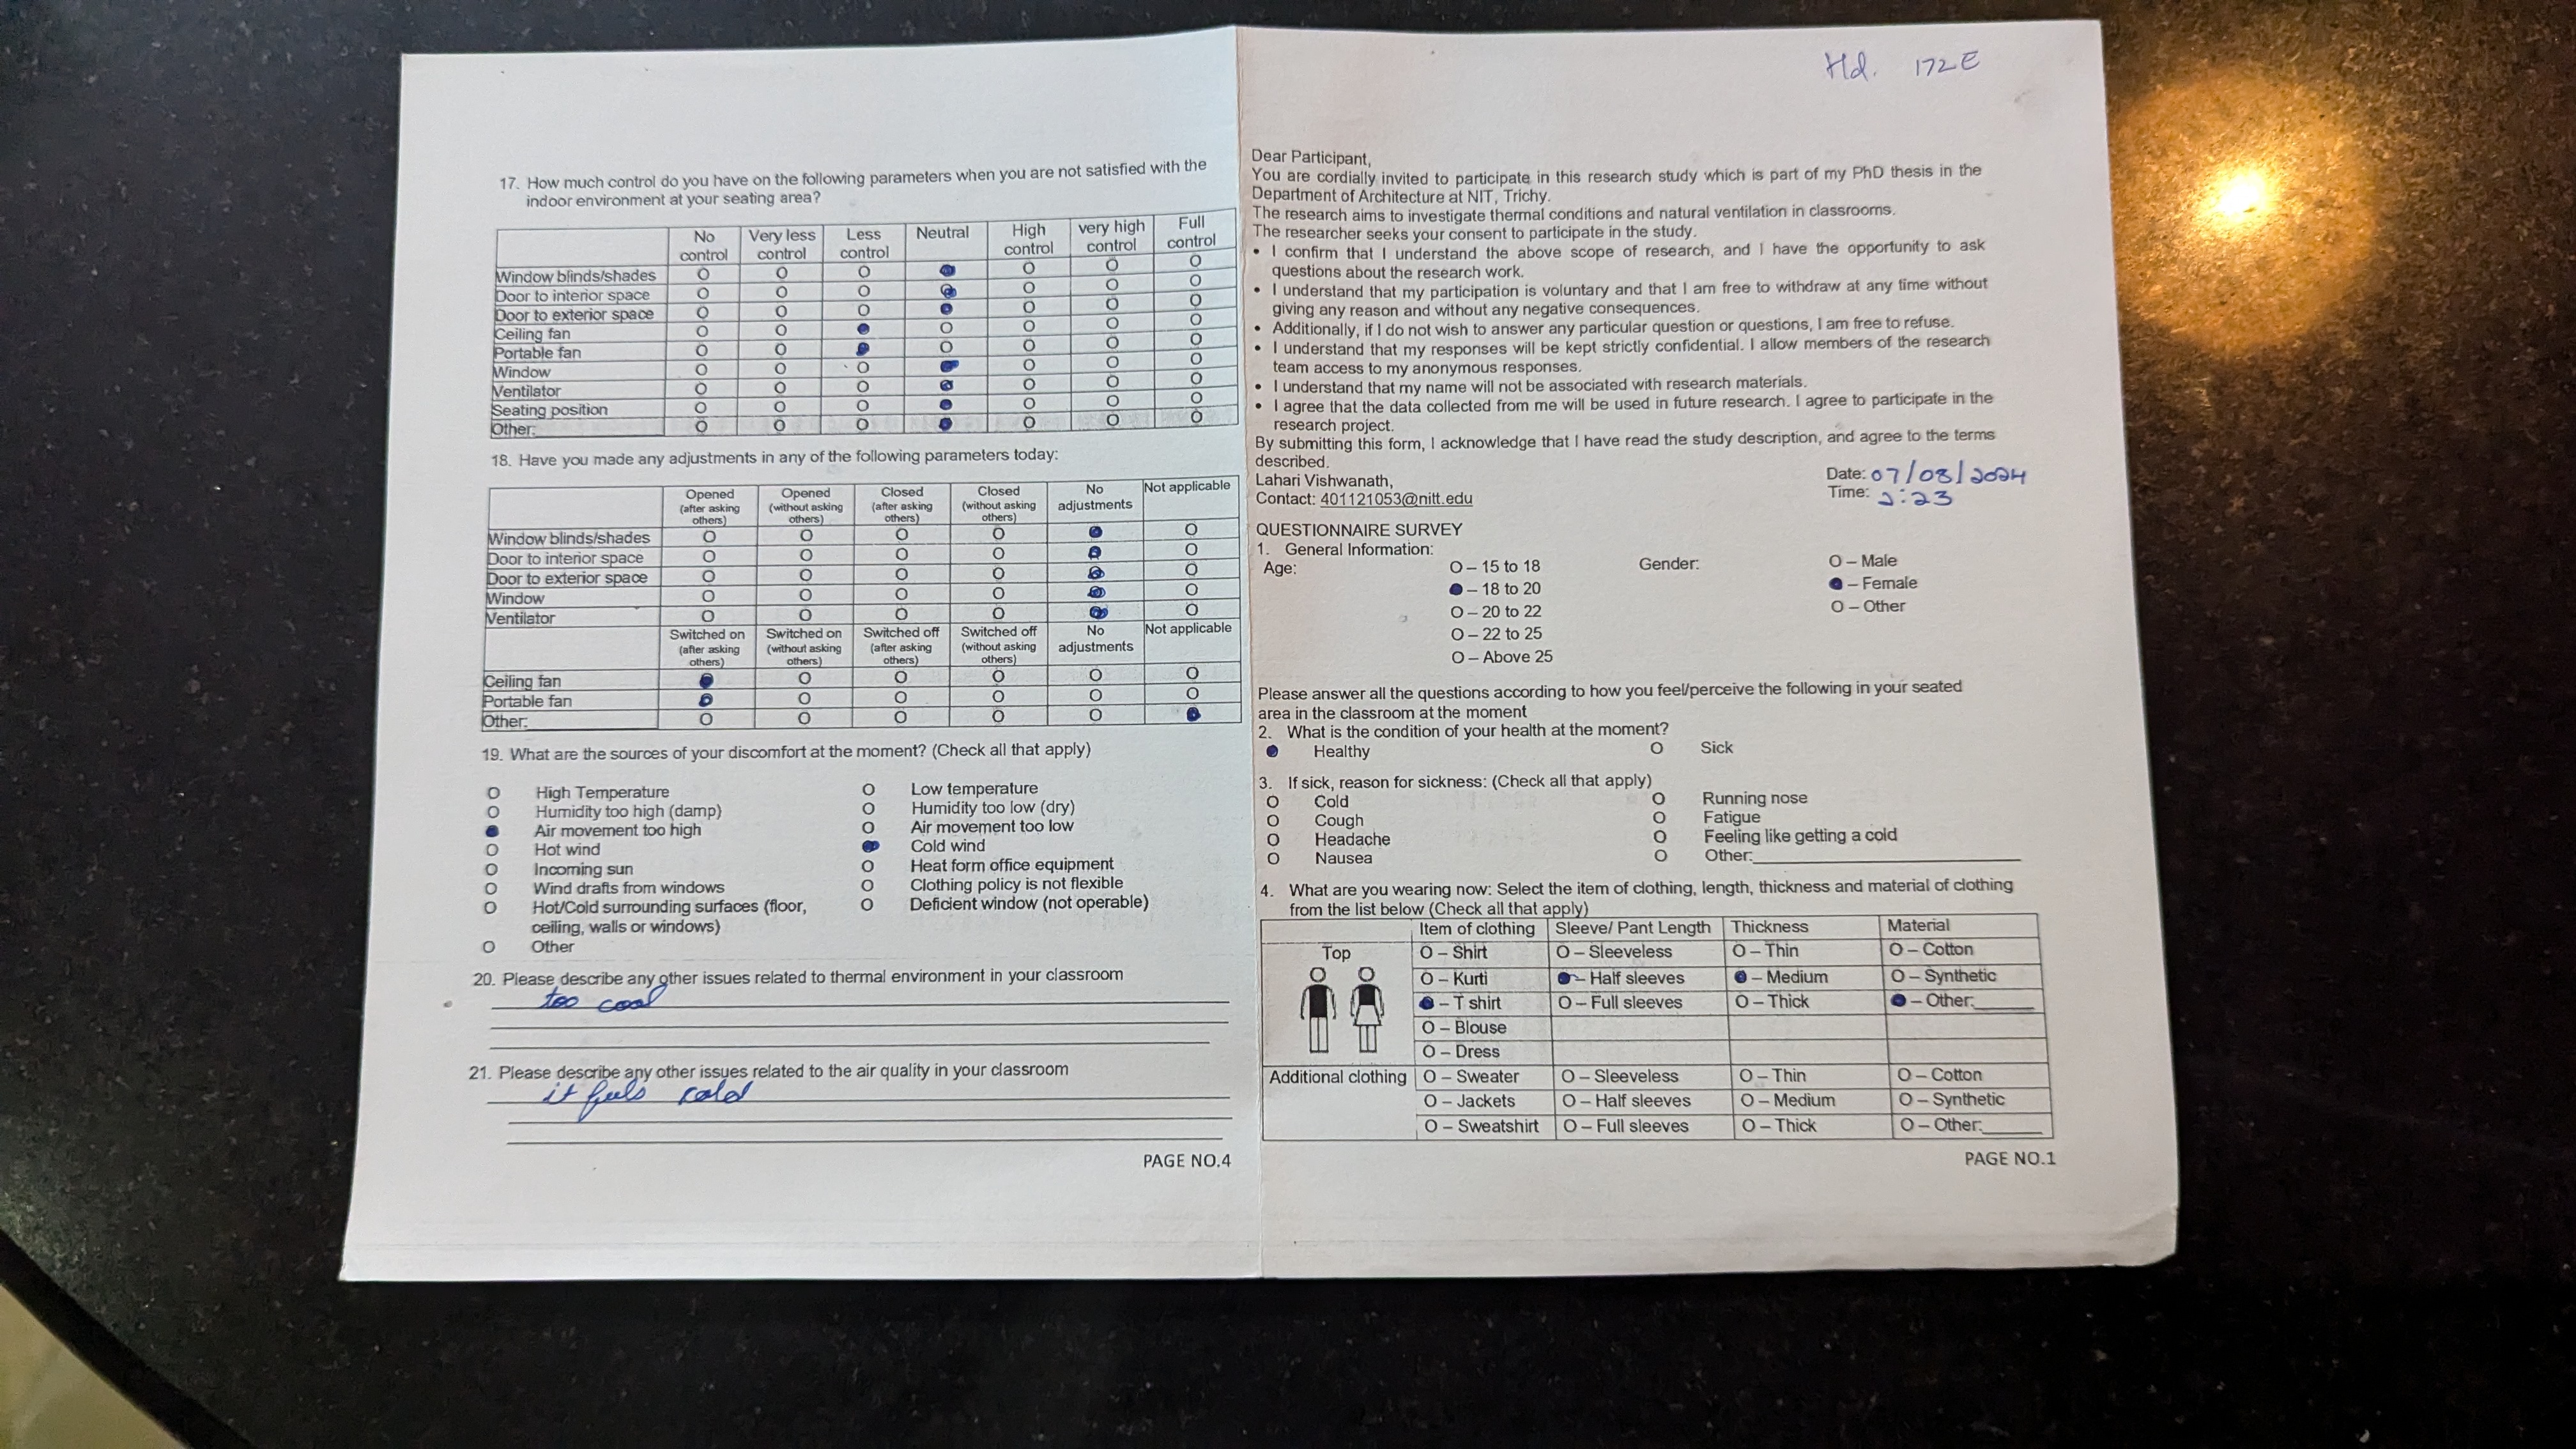 17. How much control do you have on the following parameters when you are not satisfied with the
indoor environment at your seating area?
No control Very less control Less control Neutral High control very high control Full control
Window blinds/shades O O O ● O O O
Door to interior space O O O ● O O O
Door to exterior space O O O ● O O O
Ceiling fan O O ● O O O O
Portable fan O O ● O O O O
Window O O O ● O O O
Ventilator O O O ● O O O
Seating position O O O ● O O O
Other: O O O ● O O O
18. Have you made any adjustments in any of the following parameters today:
Opened (after asking others) Opened (without asking others) Closed (after asking others) Closed (without asking others) No adjustments Not applicable
Window blinds/shades O O O O ● O
Door to interior space O O O O ● O
Door to exterior space O O O O ● O
Window O O O O ● O
Ventilator O O O O ● O
Switched on (after asking others) Switched on (without asking others) Switched off (after asking others) Switched off (without asking others) No adjustments Not applicable
Ceiling fan ● O O O O O
Portable fan ● O O O O O
Other: O O O O O ●
19. What are the sources of your discomfort at the moment? (Check all that apply)
O High Temperature O Low temperature
O Humidity too high (damp) O Humidity too low (dry)
● Air movement too high O Air movement too low
O Hot wind ● Cold wind
O Incoming sun O Heat form office equipment
O Wind drafts from windows O Clothing policy is not flexible
O Hot/Cold surrounding surfaces (floor, O Deficient window (not operable)
ceiling, walls or windows)
O Other
20. Please describe any other issues related to thermal environment in your classroom
too cool
21. Please describe any other issues related to the air quality in your classroom
it feels cold
PAGE NO.4
Hd. 172E
Dear Participant,
You are cordially invited to participate in this research study which is part of my PhD thesis in the
Department of Architecture at NIT, Trichy.
The research aims to investigate thermal conditions and natural ventilation in classrooms.
The researcher seeks your consent to participate in the study.
• I confirm that I understand the above scope of research, and I have the opportunity to ask
questions about the research work.
• I understand that my participation is voluntary and that I am free to withdraw at any time without
giving any reason and without any negative consequences.
• Additionally, if I do not wish to answer any particular question or questions, I am free to refuse.
• I understand that my responses will be kept strictly confidential. I allow members of the research
team access to my anonymous responses.
• I understand that my name will not be associated with research materials.
• I agree that the data collected from me will be used in future research. I agree to participate in the
research project.
By submitting this form, I acknowledge that I have read the study description, and agree to the terms
described.
Lahari Vishwanath,
Contact: 401121053@nitt.edu
Date: 07/08/2024
Time: 2:23
QUESTIONNAIRE SURVEY
1. General Information:
Age: O – 15 to 18 Gender: O – Male
● – 18 to 20 ● – Female
O – 20 to 22 O – Other
O – 22 to 25
O – Above 25
Please answer all the questions according to how you feel/perceive the following in your seated
area in the classroom at the moment
2. What is the condition of your health at the moment?
● Healthy O Sick
3. If sick, reason for sickness: (Check all that apply)
O Cold O Running nose
O Cough O Fatigue
O Headache O Feeling like getting a cold
O Nausea O Other:
4. What are you wearing now: Select the item of clothing, length, thickness and material of clothing
from the list below (Check all that apply)
Item of clothing Sleeve/ Pant Length Thickness Material
Top O – Shirt O – Sleeveless O – Thin O – Cotton
O – Kurti ● – Half sleeves ● – Medium O – Synthetic
● – T shirt O – Full sleeves O – Thick ● – Other:
O – Blouse
O – Dress
Additional clothing O – Sweater O – Sleeveless O – Thin O – Cotton
O – Jackets O – Half sleeves O – Medium O – Synthetic
O – Sweatshirt O – Full sleeves O – Thick O – Other:
PAGE NO.1